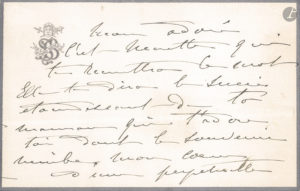 mon adoré
c'est                 qui
te remettra ce mot
Elle te dira le succès
étourdissant de to
maman qui t'adore
toi dont le souvenir
               mon coeur
d'une perpétuelle